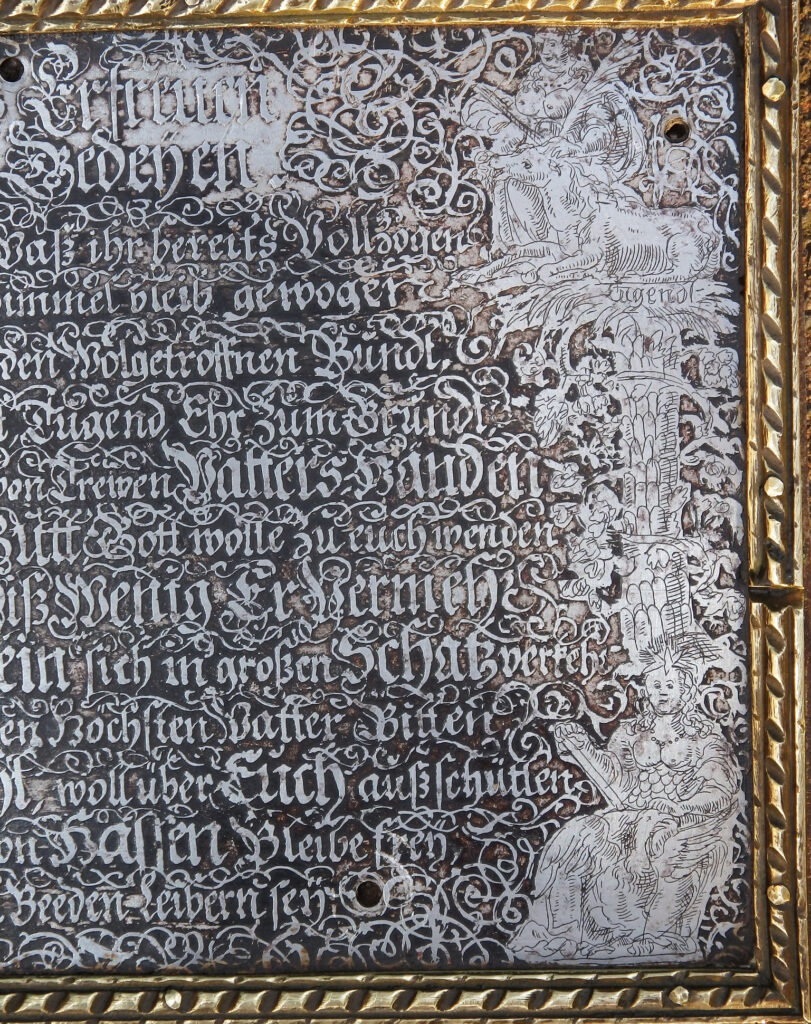 Erfreuen
Gedeyen.
Waß ihr bereits Vollzogen
bleib gewogen
den Wolgetroffnen Bundt.
Tugend Ehr Zum Grundt
von Trewen Vatters Handen
Gutt Gott wolle zu euch wenden
Wenig Er Vermehr
ein sich in großen Schatz verkehr
en Höchsten Vatter Bitten
woll über Euch außschütten
von Hassen Bleibe frey,
Beeden Leibern sey
Tugendt